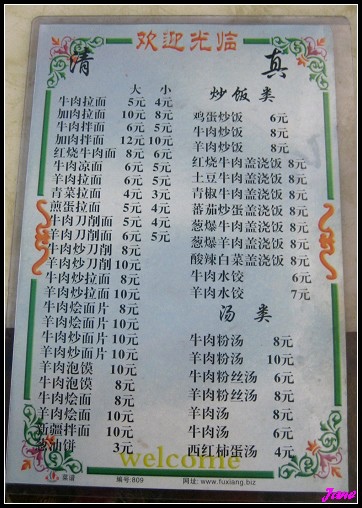 欢迎光临
清 真
大 小
牛肉拉面 5元 4元
加肉拉面 10元 8元
牛肉拌面 6元 5元
加肉拌面 12元 10元
红烧牛肉面 8元 6元
牛肉凉面 6元 5元
羊肉拉面 6元 5元
青菜拉面 4元 3元
煎蛋拉面 5元 4元
牛肉刀削面 5元 4元
羊肉刀削面 6元 5元
牛肉炒刀削 8元
羊肉炒刀削 10元
牛肉炒拉面 8元
羊肉炒拉面 10元
牛肉烩面片 8元
羊肉烩面片 10元
牛肉炒面片 8元
羊肉炒面片 10元
羊肉泡馍 10元
牛肉泡馍 8元
牛肉烩面 8元
羊肉烩面 10元
新疆拌面 10元
葱油饼 3元
炒饭类
鸡蛋炒饭 6元
牛肉炒饭 8元
羊肉炒饭 8元
红烧牛肉盖浇饭 8元
土豆牛肉盖浇饭 8元
青椒牛肉盖浇饭 8元
番茄炒蛋盖浇饭 8元
葱爆牛肉盖浇饭 8元
葱爆羊肉盖浇饭 8元
酸辣白菜盖浇饭 8元
牛肉水饺 6元
羊肉水饺 7元
汤类
牛肉粉汤 8元
羊肉粉汤 10元
牛肉粉丝汤 6元
羊肉粉丝汤 8元
羊肉汤 8元
牛肉汤 6元
西红柿蛋汤 4元
welcome
菜谱 编号:809 网址: www.fuxiang.biz